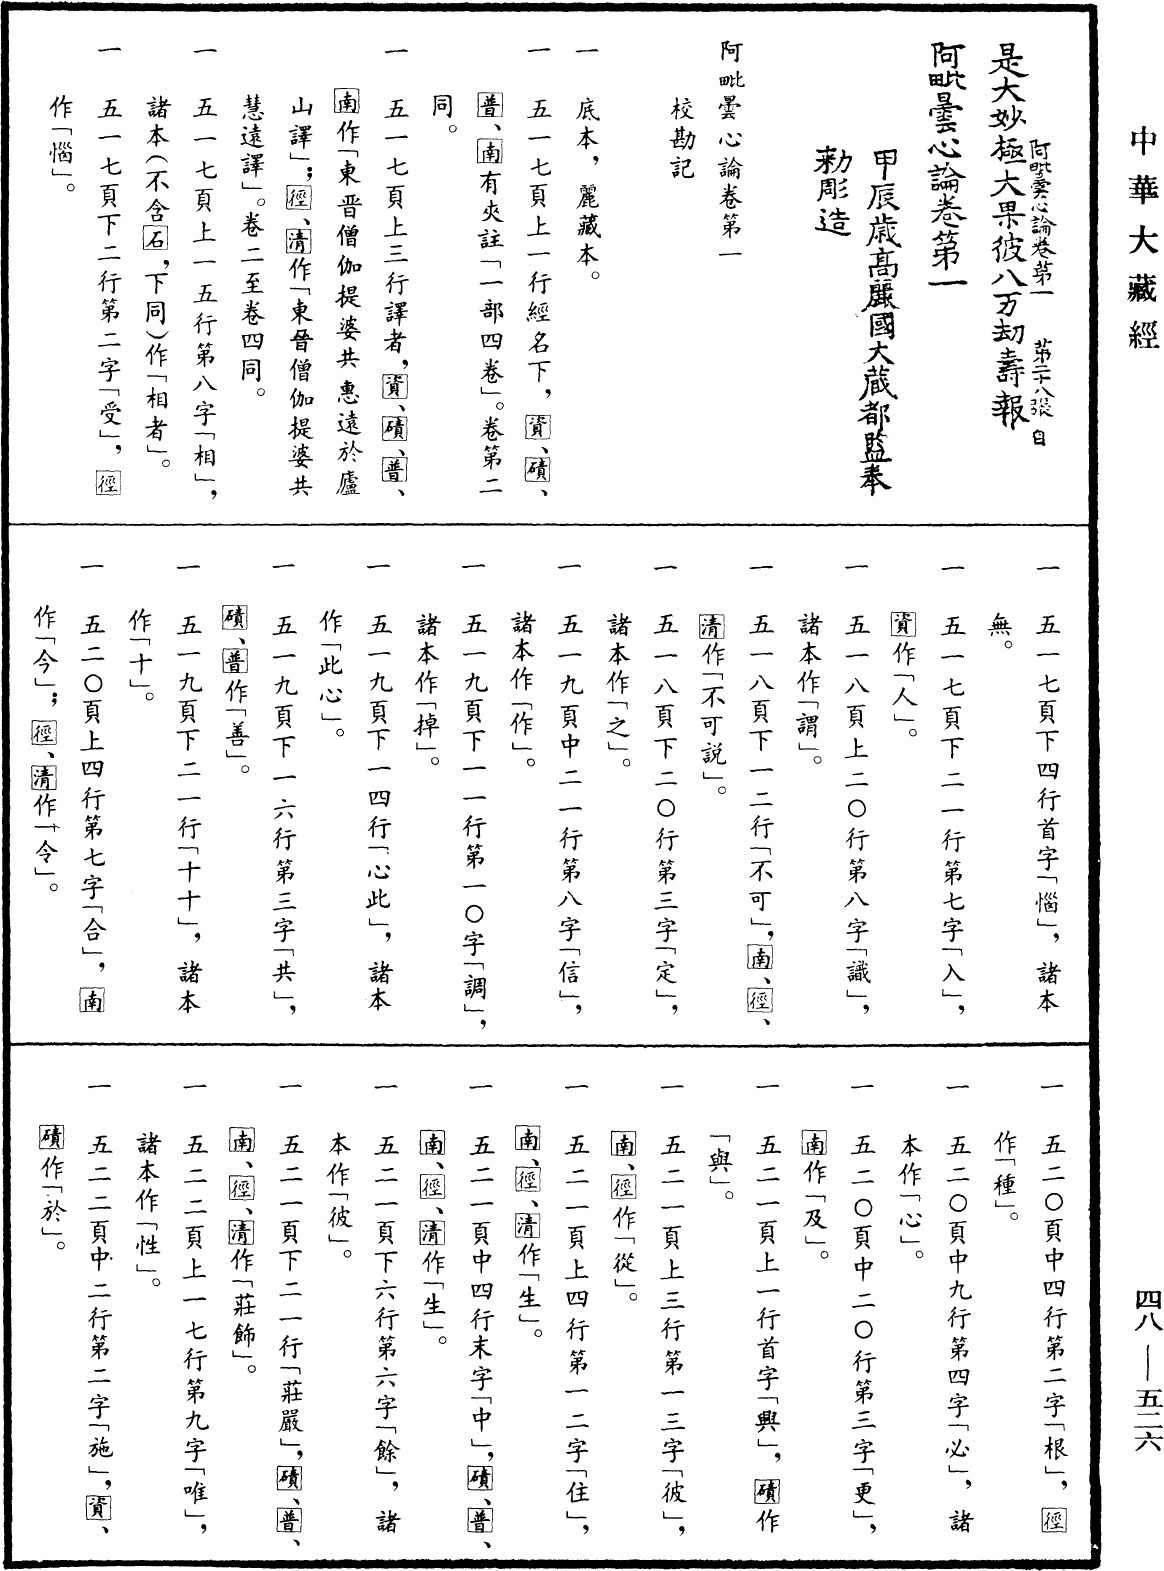 中華大藏經
四八—五二六
阿毗曇心論卷第一　第二十八張　自
是大妙極大果彼八万劫壽報
阿毗曇心論卷第一
甲辰歲高麗國大藏都監奉
勑彫造
阿毗曇心論卷第一
校勘記
一　底本，麗藏本。
一　五一七頁上一行經名下，資、磧、
普、南有夾註「一部四卷」。卷第二
同。
一　五一七頁上三行譯者，資、磧、普、
南作「東晉僧伽提婆共惠遠於廬
山譯」；徑、清作「東晉僧伽提婆共
慧遠譯」。卷二至卷四同。
一　五一七頁上一五行第八字「相」，
諸本（不含石，下同）作「相者」。
一　五一七頁下二行第二字「受」，徑
作「惱」。
一　五一七頁下四行首字「惱」，諸本
無。
一　五一七頁下二一行第七字「入」，
資作「人」。
一　五一八頁上二〇行第八字「識」，
諸本作「謂」。
一　五一八頁下一二行「不可」，南、徑、
清作「不可説」。
一　五一八頁下二〇行第三字「定」，
諸本作「之」。
一　五一九頁中二一行第八字「信」，
諸本作「作」。
一　五一九頁下一一行第一〇字「調」，
諸本作「掉」。
一　五一九頁下一四行「心此」，諸本
作「此心」。
一　五一九頁下一六行第三字「共」，
磧、普作「善」。
一　五一九頁下二一行「十十」，諸本
作「十」。
一　五二〇頁上四行第七字「合」，南
作「今」；徑、清作「令」。
一　五二〇頁中四行第二字「根」，徑
作「種」。
一　五二〇頁中九行第四字「必」，諸
本作「心」。
一　五二〇頁中二〇行第三字「更」，
南作「及」。
一　五二一頁上一行首字「興」，磧作
「與」。
一　五二一頁上三行第一三字「彼」，
南、徑作「從」。
一　五二一頁上四行第一二字「住」，
南、徑、清作「生」。
一　五二一頁中四行末字「中」，磧、普、
南、徑、清作「生」。
一　五二一頁下六行第六字「餘」，諸
本作「彼」。
一　五二一頁下二一行「莊嚴」，磧、普、
南、徑、清作「莊飾」。
一　五二二頁上一七行第九字「唯」，
諸本作「性」。
一　五二二頁中二行第二字「施」，資、
磧作「於」。